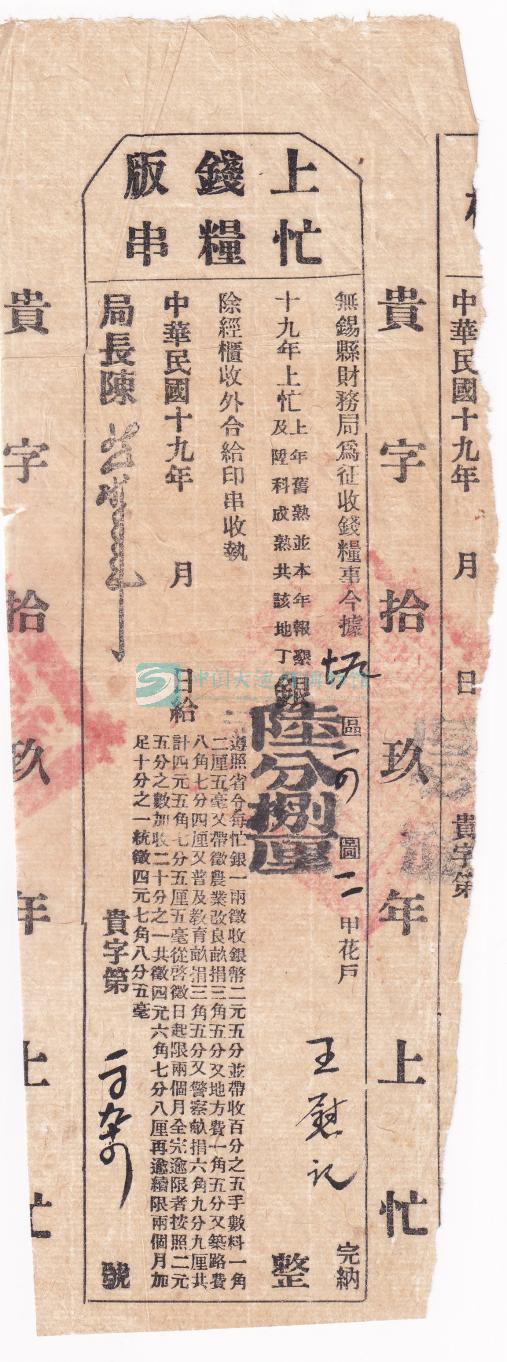 上忙
錢糧
版串
中華民國十九年 月 日
貴字第
貴字拾玖年上忙
無錫縣財務局爲征收錢糧事今據 區 圖 甲花戶 王慰記 完納
十九年上忙上年舊熟並本年報墾
及陞科成熟共該地丁銀陸分捌厘整
除經櫃收外合給印串收執
遵照省令每忙銀一兩徵收銀幣二元五分並帶收百分之五手數料一角
二厘五毫又帶徵農業改良畝捐三角五分又地方費一角五分又築路費
八角七分四厘又普及教育畝捐三角五分又警察畝捐六角九分九厘共
計四元五角七分五厘五毫從啓徵日起限兩個月全完逾限者按照二元
五分之數加收二十分之一共徵四元六角七分八厘再逾續限兩個月加
足十分之一統徵四元七角八分五毫
中華民國十九年 月 日給
貴字第 號
局長陳
貴字拾玖年上忙